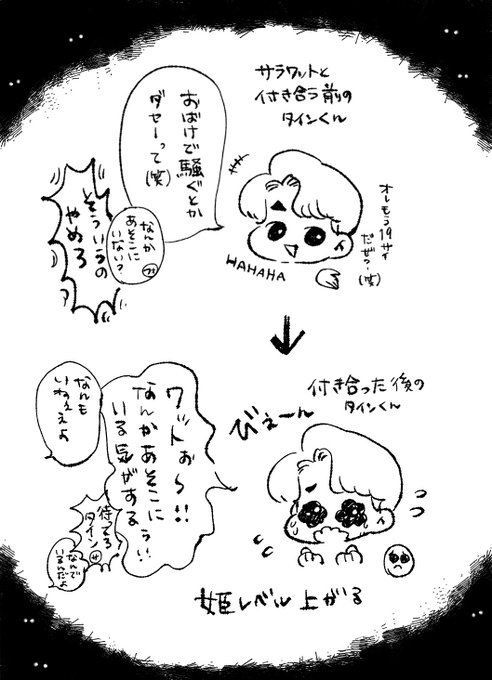 サラワットと
付き合う前の
タインくん
おばけで騒ぐとか
ダセーって(笑)
オレもう19サイ
だぜ?(笑)
HAHAHA
なんか
あそこに
いない?
そういうの
やめろ
付き合った後の
タインくん
びぇーん
ワットぉ〜!!
なんかあそこに
いる気がするぅ!!
なんも
いねぇよ
待ってろ
タイン
サ
なんで
いるんだよ
姫レベル上がる